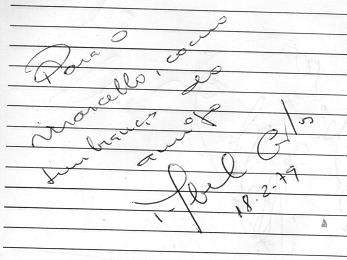 Para o
Marcello, como
lembrança do
amigo
Abel
18.2.79